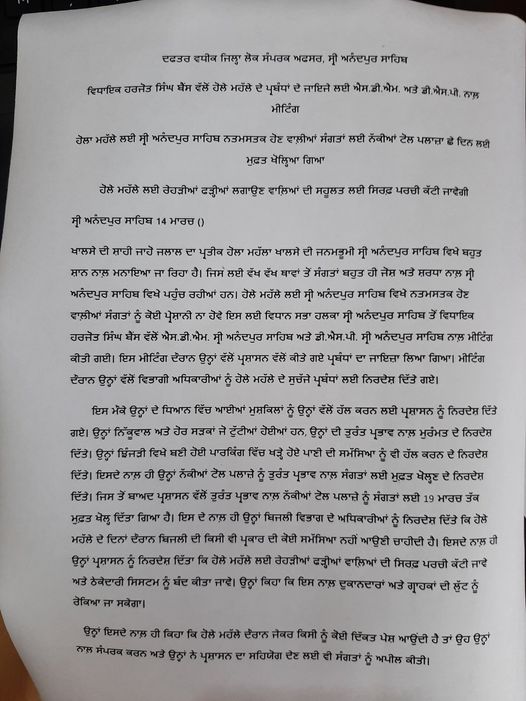 ਦਫਤਰ ਵਧੀਕ ਜਿਲ੍ਹਾ ਲੋਕ ਸੰਪਰਕ ਅਫਸਰ, ਸ੍ਰੀ ਅਨੰਦਪੁਰ ਸਾਹਿਬ
ਵਿਧਾਇਕ ਹਰਜੋਤ ਸਿੰਘ ਬੈਂਸ ਵੱਲੋਂ ਹੋਲੇ ਮਹੱਲੇ ਦੇ ਪ੍ਰਬੰਧਾਂ ਦੇ ਜਾਇਜੇ ਲਈ ਐਸ.ਡੀ.ਐਮ. ਅਤੇ ਡੀ.ਐਸ.ਪੀ. ਨਾਲ਼
ਮੀਟਿੰਗ
ਹੋਲਾ ਮਹੱਲੇ ਲਈ ਸ੍ਰੀ ਅਨੰਦਪੁਰ ਸਾਹਿਬ ਨਤਮਸਤਕ ਹੋਣ ਵਾਲ਼ੀਆਂ ਸੰਗਤਾਂ ਲਈ ਨੱਕੀਆਂ ਟੋਲ ਪਲਾਜ਼ਾ ਛੇ ਦਿਨ ਲਈ
ਮੁਫ਼ਤ ਖੋਲ੍ਹਿਆ ਗਿਆ
ਹੋਲੇ ਮਹੱਲੇ ਲਈ ਰੇਹੜੀਆਂ ਫੜ੍ਹੀਆਂ ਲਗਾਉਣ ਵਾਲ਼ਿਆਂ ਦੀ ਸਹੂਲਤ ਲਈ ਸਿਰਫ਼ ਪਰਚੀ ਕੱਟੀ ਜਾਵੇਗੀ
ਸ੍ਰੀ ਅਨੰਦਪੁਰ ਸਾਹਿਬ 14 ਮਾਰਚ ()
ਖਾਲਸੇ ਦੀ ਸ਼ਾਹੀ ਜਾਹੋ ਜਲਾਲ ਦਾ ਪ੍ਰਤੀਕ ਹੋਲਾ ਮਹੱਲਾ ਖਾਲਸੇ ਦੀ ਜਨਮਭੂਮੀ ਸ੍ਰੀ ਅਨੰਦਪੁਰ ਸਾਹਿਬ ਵਿਖੇ ਬਹੁਤ
ਸ਼ਾਨ ਨਾਲ਼ ਮਨਾਇਆ ਜਾ ਰਿਹਾ ਹੈ। ਜਿਸ ਲਈ ਵੱਖ ਵੱਖ ਥਾਵਾਂ ਤੋਂ ਸੰਗਤਾਂ ਬਹੁਤ ਹੀ ਜੋਸ਼ ਅਤੇ ਸ਼ਰਧਾ ਨਾਲ਼ ਸ੍ਰੀ
ਅਨੰਦਪੁਰ ਸਾਹਿਬ ਵਿਖੇ ਪਹੁੰਚ ਰਹੀਆਂ ਹਨ। ਹੋਲੇ ਮਹੱਲੇ ਲਈ ਸ੍ਰੀ ਅਨੰਦਪੁਰ ਸਾਹਿਬ ਵਿਖੇ ਨਤਮਸਤਕ ਹੋਣ
ਵਾਲ਼ੀਆਂ ਸੰਗਤਾਂ ਨੂੰ ਕੋਈ ਪ੍ਰੇਸ਼ਾਨੀ ਨਾ ਹੋਵੇ ਇਸ ਲਈ ਵਿਧਾਨ ਸਭਾ ਹਲਕਾ ਸ੍ਰੀ ਅਨੰਦਪੁਰ ਸਾਹਿਬ ਤੋਂ ਵਿਧਾਇਕ
ਹਰਜੋਤ ਸਿੰਘ ਬੈਂਸ ਵੱਲੋਂ ਐਸ.ਡੀ.ਐਮ. ਸ੍ਰੀ ਅਨੰਦਪੁਰ ਸਾਹਿਬ ਅਤੇ ਡੀ.ਐਸ.ਪੀ. ਸ੍ਰੀ ਅਨੰਦਪੁਰ ਸਾਹਿਬ ਨਾਲ਼ ਮੀਟਿੰਗ
ਕੀਤੀ ਗਈ। ਇਸ ਮੀਟਿੰਗ ਦੌਰਾਨ ਉਨ੍ਹਾਂ ਵੱਲੋਂ ਪ੍ਰਸ਼ਾਸਨ ਵੱਲੋਂ ਕੀਤੇ ਗਏ ਪ੍ਰਬੰਧਾਂ ਦਾ ਜਾਇਜ਼ਾ ਲਿਆ ਗਿਆ। ਮੀਟਿੰਗ
ਦੌਰਾਨ ਉਨ੍ਹਾਂ ਵੱਲੋਂ ਵਿਭਾਗੀ ਅਧਿਕਾਰੀਆਂ ਨੂੰ ਹੋਲੇ ਮਹੱਲੇ ਦੇ ਸੁਚੱਜੇ ਪ੍ਰਬੰਧਾਂ ਲਈ ਨਿਰਦੇਸ਼ ਦਿੱਤੇ ਗਏ।
ਇਸ ਮੌਕੇ ਉਨ੍ਹਾਂ ਦੇ ਧਿਆਨ ਵਿੱਚ ਆਈਆਂ ਮੁਸ਼ਕਿਲਾਂ ਨੂੰ ਉਨ੍ਹਾਂ ਵੱਲੋਂ ਹੱਲ ਕਰਨ ਲਈ ਪ੍ਰਸ਼ਾਸਨ ਨੂੰ ਨਿਰਦੇਸ਼ ਦਿੱਤੇ
ਗਏ। ਉਨ੍ਹਾਂ ਨਿੱਕੂਵਾਲ ਅਤੇ ਹੋਰ ਸੜਕਾਂ ਜੋ ਟੁੱਟੀਆਂ ਹੋਈਆਂ ਹਨ, ਉਨ੍ਹਾਂ ਦੀ ਤੁਰੰਤ ਪ੍ਰਭਾਵ ਨਾਲ਼ ਮੁਰੰਮਤ ਦੇ ਨਿਰਦੇਸ਼
ਦਿੱਤੇ। ਉਨ੍ਹਾਂ ਝਿੰਜੜੀ ਵਿਖੇ ਬਣੀ ਹੋਈ ਪਾਰਕਿੰਗ ਵਿੱਚ ਖੜ੍ਹੇ ਹੋਏ ਪਾਣੀ ਦੀ ਸਮੱਸਿਆ ਨੂੰ ਵੀ ਹੱਲ ਕਰਨ ਦੇ ਨਿਰਦੇਸ਼
ਦਿੱਤੇ। ਇਸਦੇ ਨਾਲ਼ ਹੀ ਉਨ੍ਹਾਂ ਨੱਕੀਆਂ ਟੋਲ ਪਲਾਜ਼ੇ ਨੂੰ ਤੁਰੰਤ ਪ੍ਰਭਾਵ ਨਾਲ਼ ਸੰਗਤਾਂ ਲਈ ਮੁਫ਼ਤ ਖੋਲ੍ਹਣ ਦੇ ਨਿਰਦੇਸ਼
ਦਿੱਤੇ। ਜਿਸ ਤੋਂ ਬਾਅਦ ਪ੍ਰਸ਼ਾਸਨ ਵੱਲੋਂ ਤੁਰੰਤ ਪ੍ਰਭਾਵ ਨਾਲ਼ ਨੱਕੀਆਂ ਟੋਲ ਪਲਾਜ਼ੇ ਨੂੰ ਸੰਗਤਾਂ ਲਈ 19 ਮਾਰਚ ਤੱਕ
ਮੁਫ਼ਤ ਖੋਲ੍ਹ ਦਿੱਤਾ ਗਿਆ ਹੈ। ਇਸ ਦੇ ਨਾਲ਼ ਹੀ ਉਨ੍ਹਾਂ ਬਿਜਲੀ ਵਿਭਾਗ ਦੇ ਅਧਿਕਾਰੀਆਂ ਨੂੰ ਨਿਰਦੇਸ਼ ਦਿੱਤੇ ਕਿ ਹੋਲੇ
ਮਹੱਲੇ ਦੇ ਦਿਨਾਂ ਦੌਰਾਨ ਬਿਜਲੀ ਦੀ ਕਿਸੀ ਵੀ ਪ੍ਰਕਾਰ ਦੀ ਕੋਈ ਸਮੱਸਿਆ ਨਹੀਂ ਆਉਣੀ ਚਾਹੀਦੀ ਹੈ। ਇਸਦੇ ਨਾਲ਼ ਹੀ
ਉਨ੍ਹਾਂ ਪ੍ਰਸ਼ਾਸਨ ਨੂੰ ਨਿਰਦੇਸ਼ ਦਿੱਤਾ ਕਿ ਹੋਲੇ ਮਹੱਲੇ ਲਈ ਰੇਹੜੀਆਂ ਫੜ੍ਹੀਆਂ ਵਾਲ਼ਿਆਂ ਦੀ ਸਿਰਫ਼ ਪਰਚੀ ਕੱਟੀ ਜਾਵੇ
ਅਤੇ ਠੇਕੇਦਾਰੀ ਸਿਸਟਮ ਨੂੰ ਬੰਦ ਕੀਤਾ ਜਾਵੇ। ਉਨ੍ਹਾਂ ਕਿਹਾ ਕਿ ਇਸ ਨਾਲ਼ ਦੁਕਾਨਦਾਰਾਂ ਅਤੇ ਗ੍ਰਾਹਕਾਂ ਦੀ ਲੁੱਟ ਨੂੰ
ਰੋਕਿਆ ਜਾ ਸਕੇਗਾ।
ਉਨ੍ਹਾਂ ਇਸਦੇ ਨਾਲ਼ ਹੀ ਕਿਹਾ ਕਿ ਹੋਲੇ ਮਹੱਲੇ ਦੌਰਾਨ ਜੇਕਰ ਕਿਸੀ ਨੂੰ ਕੋਈ ਦਿੱਕਤ ਪੇਸ਼ ਆਉਂਦੀ ਹੈ ਤਾਂ ਉਹ ਉਨ੍ਹਾਂ
ਨਾਲ਼ ਸੰਪਰਕ ਕਰਨ ਅਤੇ ਉਨ੍ਹਾਂ ਨੇ ਪ੍ਰਸ਼ਾਸਨ ਦਾ ਸਹਿਯੋਗ ਦੇਣ ਲਈ ਵੀ ਸੰਗਤਾਂ ਨੂੰ ਅਪੀਲ ਕੀਤੀ।